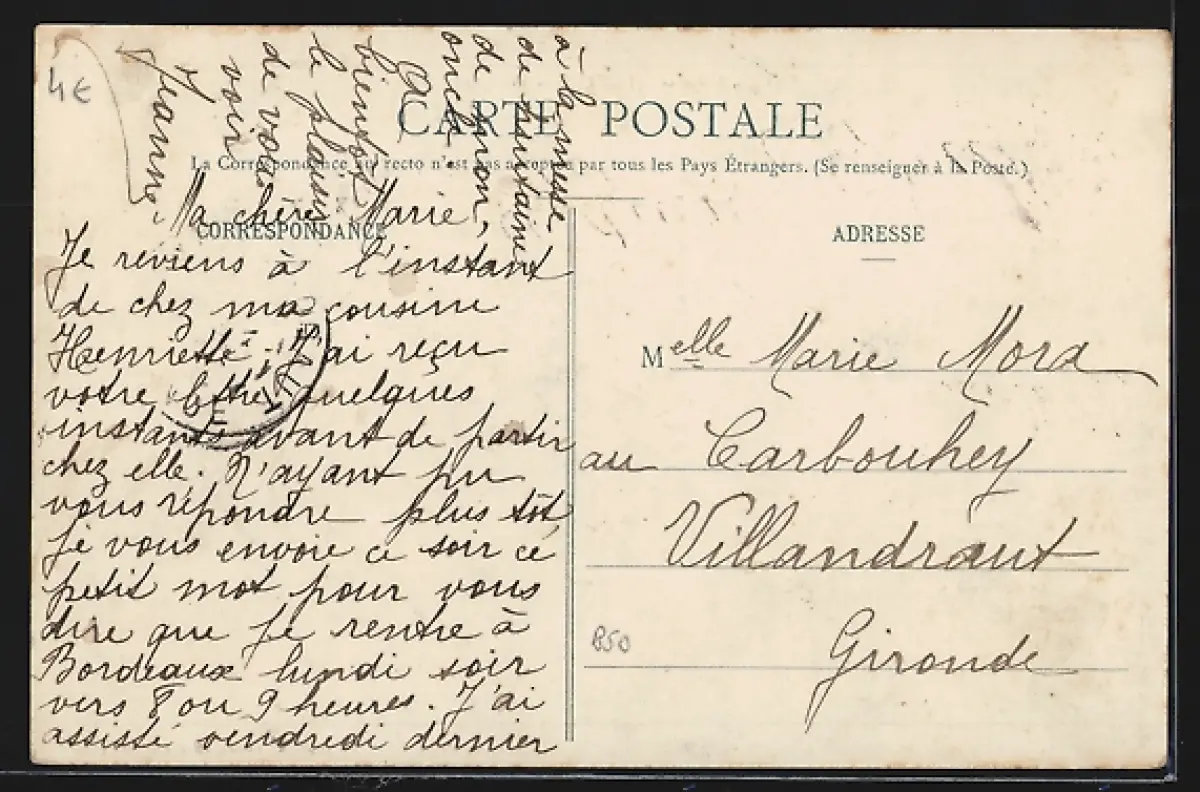 4€
CARTE POSTALE
La Correspondance au recto n'est pas acceptée par tous les Pays Étrangers. (Se renseigner à la Poste.)
CORRESPONDANCE
Ma chère Marie,
Je reviens à l'instant
de chez ma cousine
Henriette. J'ai reçu
votre lettre quelques
instants avant de partir
chez elle. N'ayant pu
vous répondre plus tôt,
je vous envoie ce soir ce
petit mot pour vous
dire que je rentre à
Bordeaux lundi soir
vers 8 ou 9 heures. J'ai
assisté vendredi dernier
à la messe
de huitaine
de mon
oncle.
A
bientôt
le plaisir
de vous
voir
Jeanne.
ADRESSE
Melle Marie Mora
au Carbouhey
Villandraut
Gironde
B50